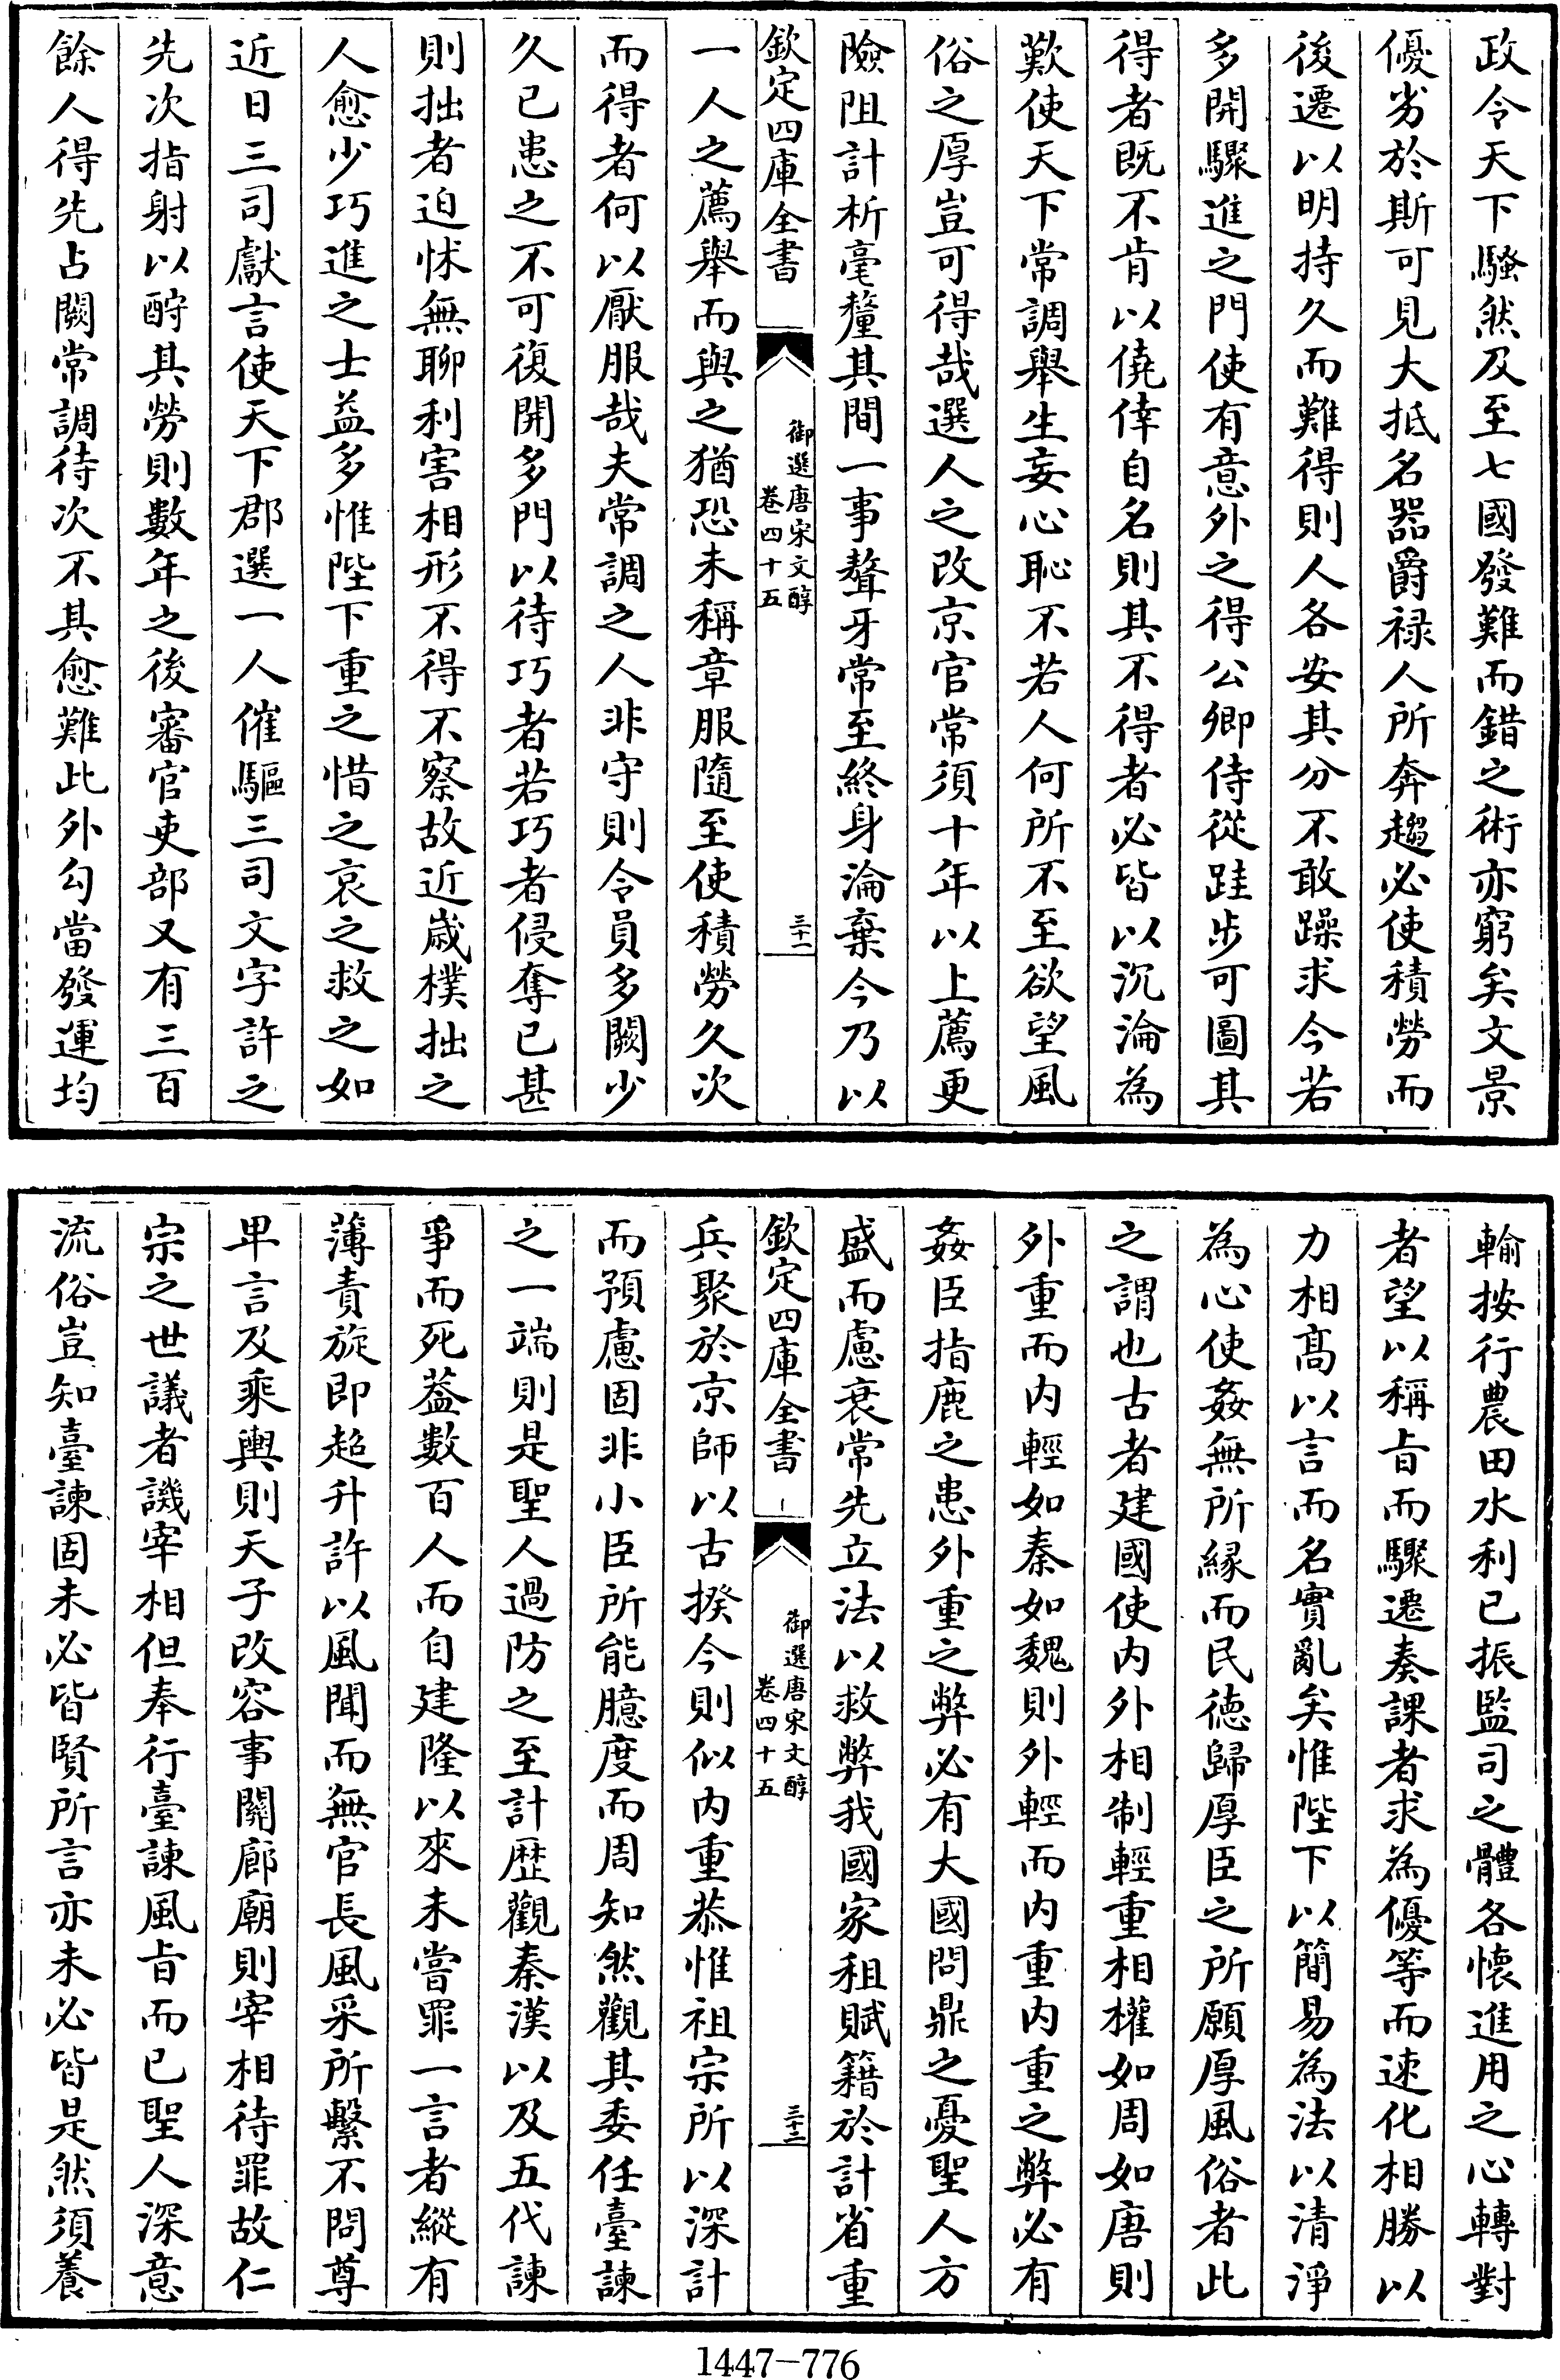 政令天下騷然及至七國發難而錯之術亦窮矣文景
優劣於斯可見大抵名器爵禄人所奔趨必使積勞而
後遷以明持久而難得則人各安其分不敢躁求今若
多開驟進之門使有意外之得公卿侍從跬步可圖其
得者既不肯以僥倖自名則其不得者必皆以沉淪為
歎使天下常調舉生妄心恥不若人何所不至欲望風
俗之厚豈可得哉選人之改京官常須十年以上薦更
險阻計析毫釐其間一事聱牙常至終身淪棄今乃以
欽定四庫全書
御選唐宋文醇
卷四十五
三十一
一人之薦舉而與之猶恐未稱章服隨至使積勞久次
而得者何以厭服哉夫常調之人非守則令員多闕少
久已患之不可復開多門以待巧者若巧者侵奪已甚
則拙者迫怵無聊利害相形不得不察故近歲樸拙之
人愈少巧進之士益多惟陛下重之惜之哀之救之如
近日三司獻言使天下郡選一人催驅三司文字許之
先次指射以酧其勞則數年之後審官吏部又有三百
餘人得先占闕常調待次不其愈難此外勾當發運均
輸按行農田水利已振監司之體各懷進用之心轉對
者望以稱㫖而驟遷奏課者求為優等而速化相勝以
力相髙以言而名實亂矣惟陛下以簡易為法以清淨
為心使姦無所縁而民徳歸厚臣之所願厚風俗者此
之謂也古者建國使内外相制輕重相權如周如唐則
外重而内輕如秦如魏則外輕而内重内重之弊必有
姦臣指鹿之患外重之弊必有大國問鼎之憂聖人方
盛而慮衰常先立法以救弊我國家租賦籍於計省重
欽定四庫全書
御選唐宋文醇
卷四十五
三十二
兵聚於京師以古揆今則似内重恭惟祖宗所以深計
而預慮固非小臣所能臆度而周知然觀其委任臺諫
之一端則是聖人過防之至計歴觀秦漢以及五代諫
爭而死葢數百人而自建隆以來未嘗罪一言者縱有
薄責旋即超升許以風聞而無官長風采所繫不問尊
卑言及乘輿則天子改容事關廊廟則宰相待罪故仁
宗之世議者譏宰相但奉行臺諫風㫖而已聖人深意
流俗豈知臺諫固未必皆賢所言亦未必皆是然須養
1447-776